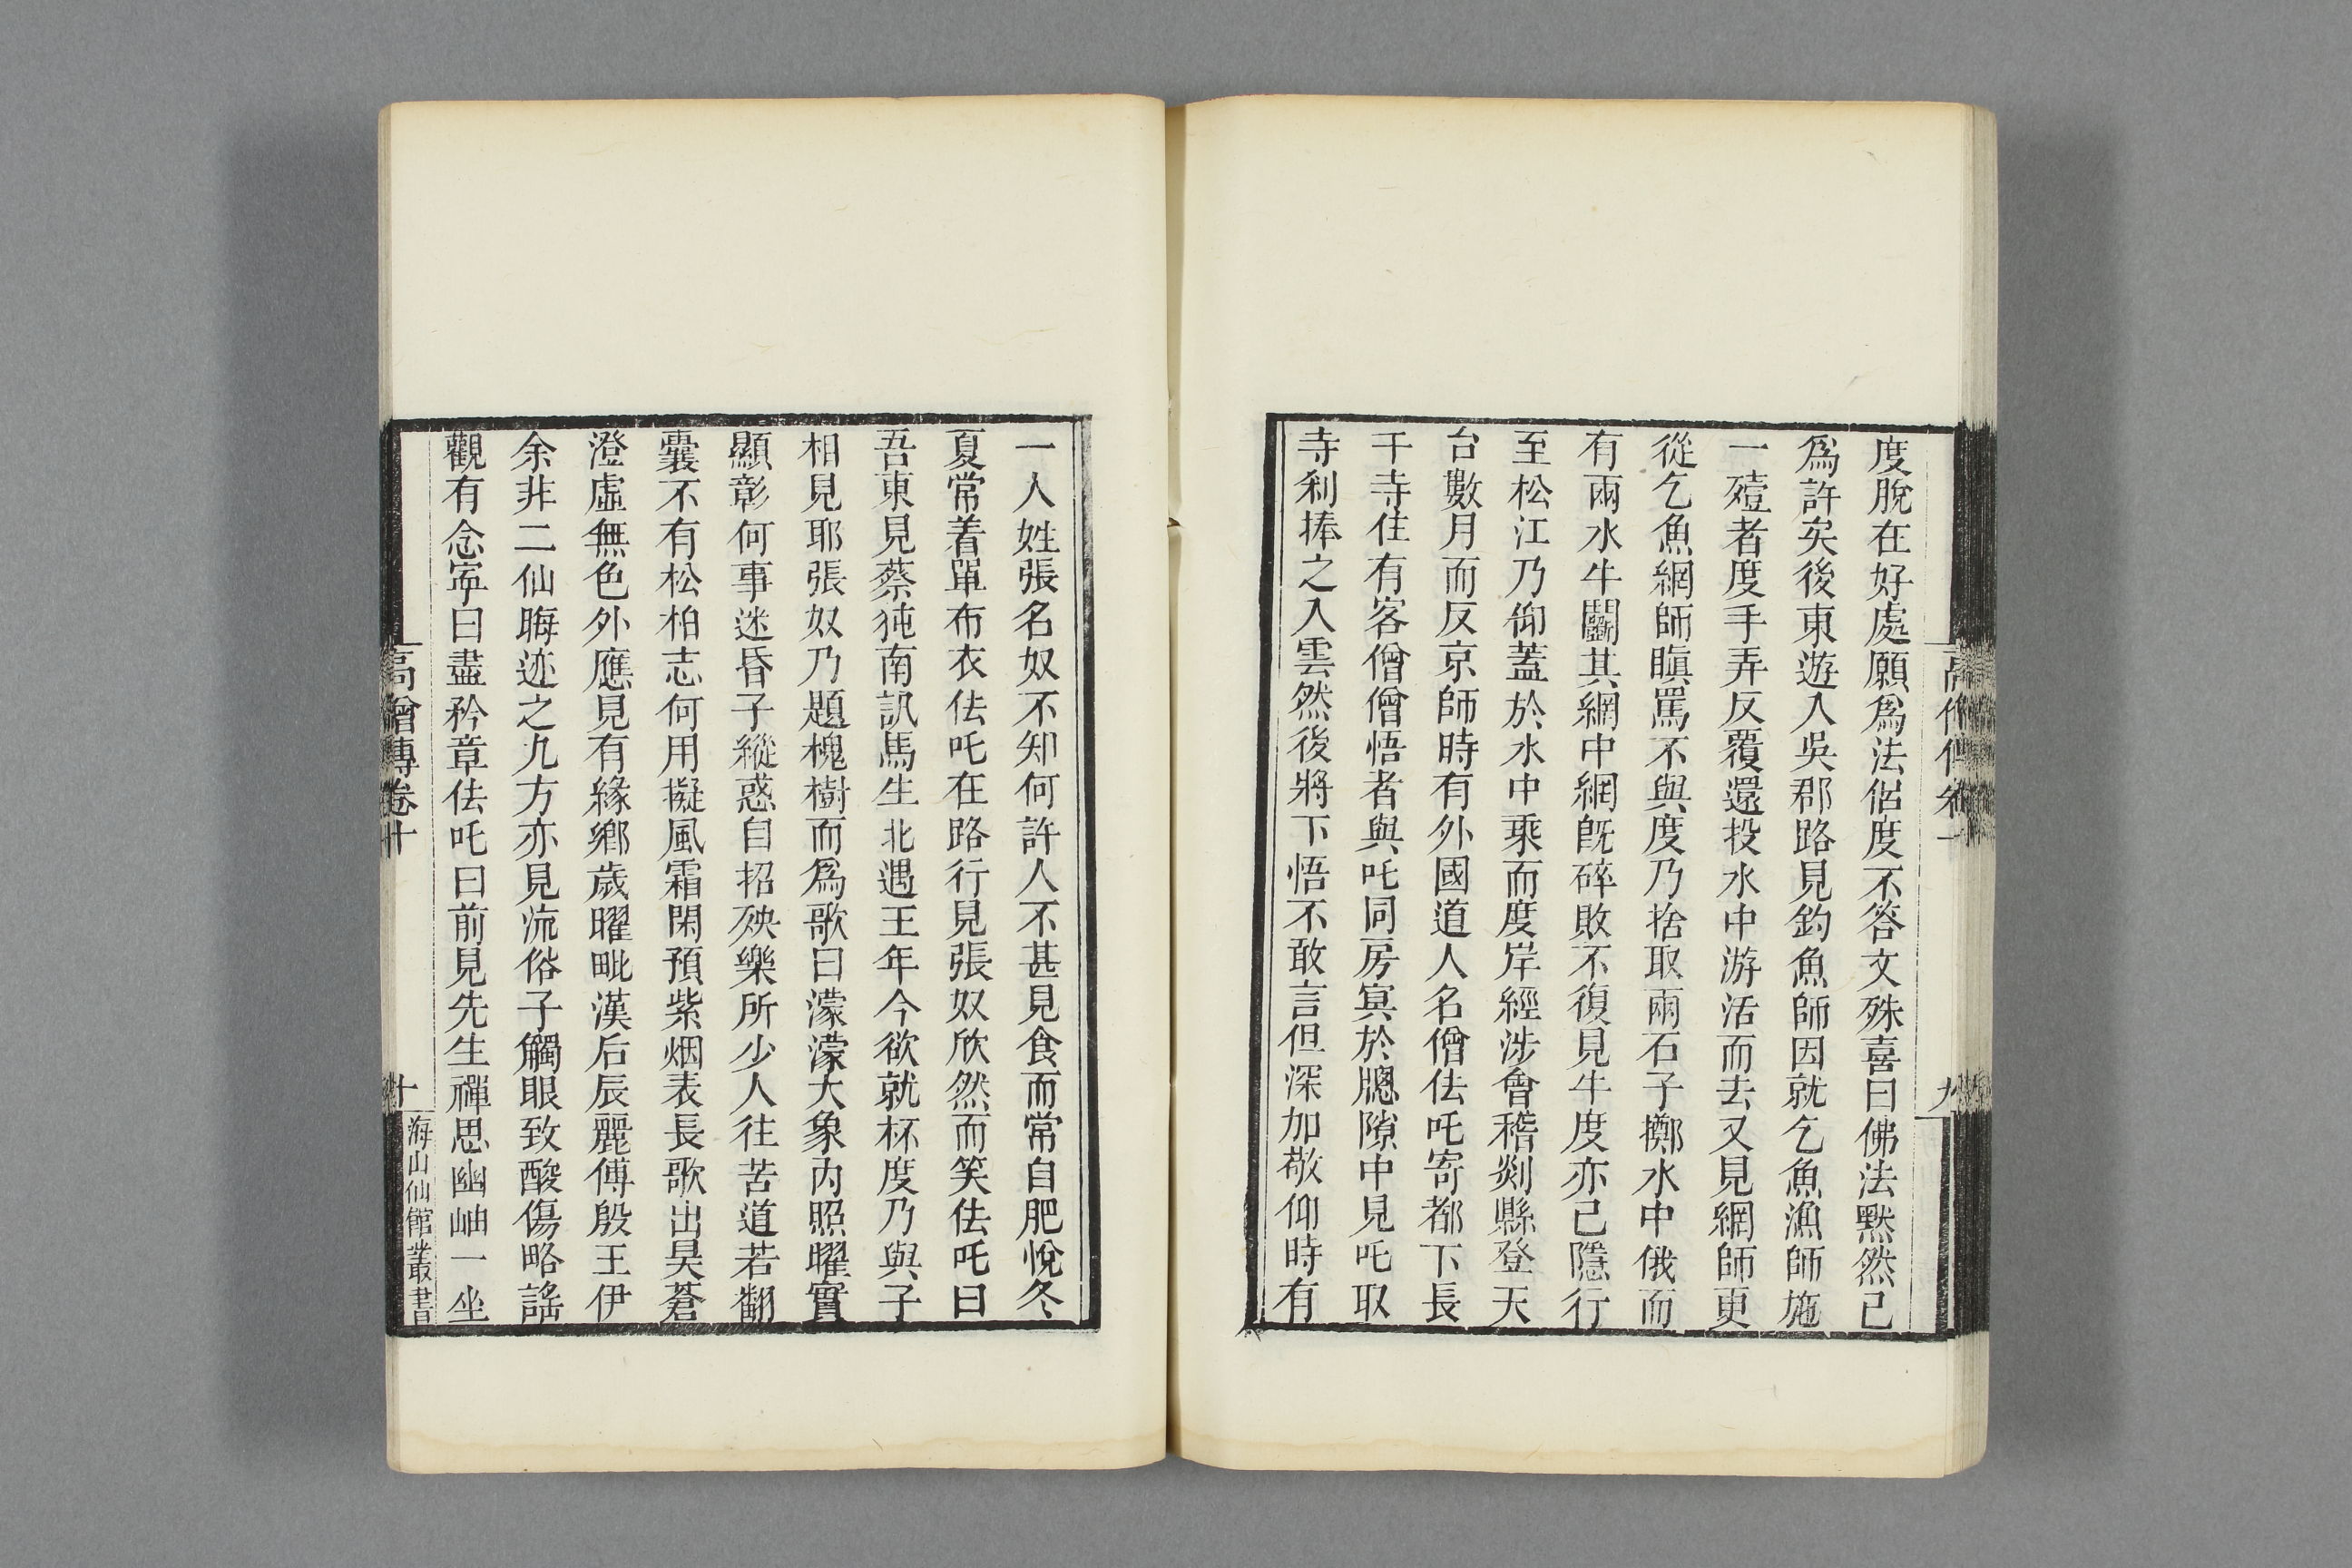 度脫在好處願爲法侶度不答文殊喜曰佛法默然已
爲許矣後東遊入吳郡路見釣魚師因就乞魚漁師施
一殪者度手弄反覆還投水中游活而去又見網師更
從乞魚網師瞋罵不與度乃捨取兩石子擲水中俄而
有兩水牛鬭其網中網旣碎敗不復見牛度亦已隱行
至松江乃仰蓋於水中乘而度岸經涉會稽剡縣登天
台數月而反京師時有外國道人名僧佉吒寄都下長
干寺住有客僧僧悟者與吒同房冥於牕隙中見吒取
寺刹捧之入雲然後將下悟不敢言但深加敬仰時有
高僧傳卷十
九
一人姓張名奴不知何許人不甚見食而常自肥悅冬
夏常着單布衣佉吒在路行見張奴欣然而笑佉吒曰
吾東見蔡㹠南訊馬生北遇王年今欲就杯度乃與子
相見耶張奴乃題槐樹而爲歌曰濛濛大象內照曜實
顯彰何事迷昏子縱惑自招殃樂所少人往苦道若翻
囊不有松柏志何用擬風霜閑預紫烟表長歌出昊蒼
澄虛無色外應見有緣鄉歲曜毗漢后辰麗傅殷王伊
余非二仙晦迹之九方亦見流俗子觸眼致酸傷略謠
觀有念寧曰盡矜章佉吒曰前見先生禪思幽岫一坐
高僧傳卷十
十
海山仙館叢書